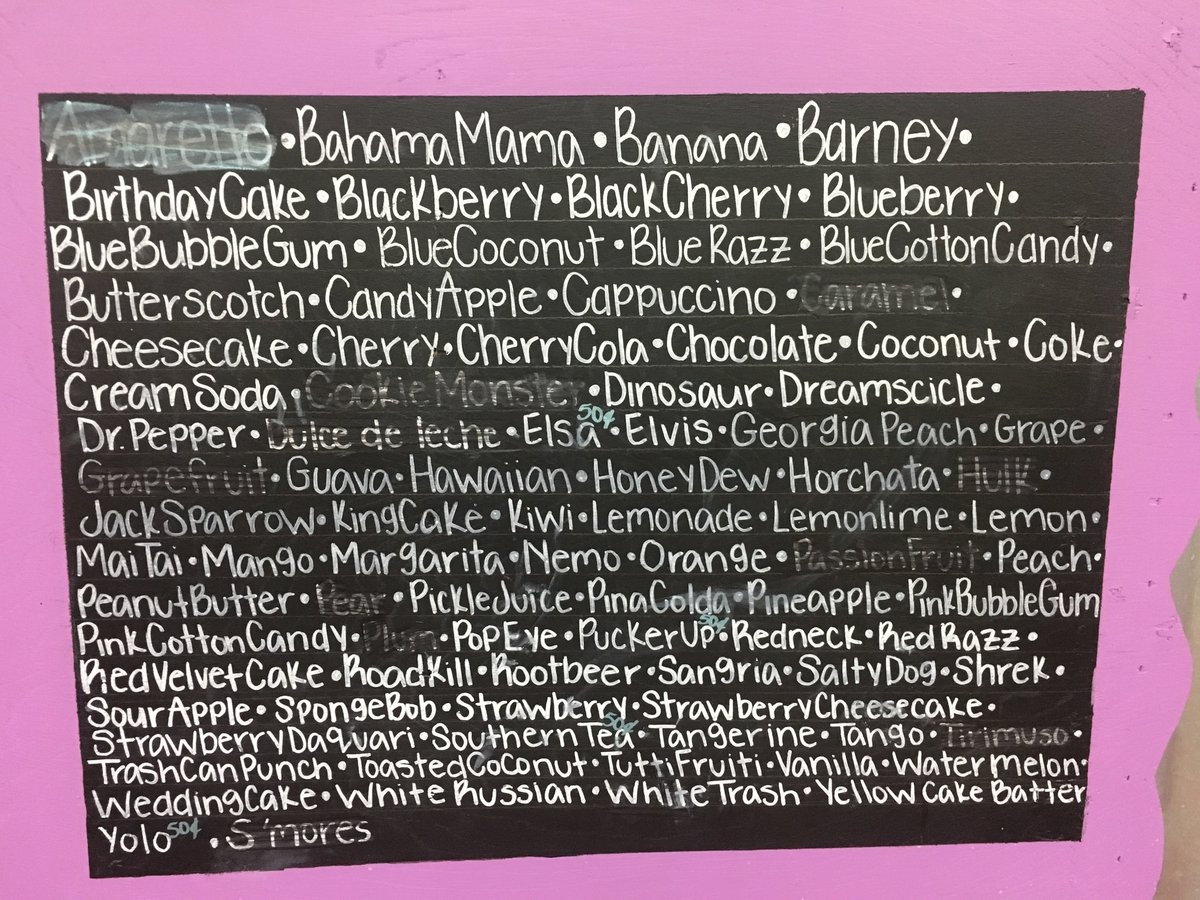 Amaretto • Bahama Mama • Banana • Barney •
Birthday Cake • Blackberry • Black Cherry • Blueberry •
Blue Bubble Gum • Blue Coconut • Blue Razz • Blue Cotton Candy •
Butterscotch • Candy Apple • Cappuccino • Caramel •
Cheesecake • Cherry • Cherry Cola • Chocolate • Coconut • Coke •
Cream Soda • Cookie Monster • Dinosaur • Dreamscicle •
Dr. Pepper • Dulce de leche • Elsa 50¢ • Elvis • Georgia Peach • Grape •
Grapefruit • Guava • Hawaiian • Honey Dew • Horchata • Hulk •
Jack Sparrow • King Cake • Kiwi • Lemonade • Lemonlime • Lemon •
Mai Tai • Mango • Margarita • Nemo • Orange • Passion Fruit • Peach •
Peanut Butter • Pear • Pickle Juice • Pina Colda • Pineapple • Pink Bubble Gum
Pink Cotton Candy • Plum • PopEye • Pucker Up 50¢ • Redneck • Red Razz •
Red Velvet Cake • Roadkill • Rootbeer • Sangria • Salty Dog • Shrek •
Sour Apple • SpongeBob • Strawberry • Strawberry Cheesecake •
Strawberry Daquari • Southern Tea 50¢ • Tangerine • Tango • Tirimuso •
Trash Can Punch • Toasted Coconut • Tutti Fruiti • Vanilla • Watermelon •
Wedding Cake • White Russian • White Trash • Yellow Cake Batter
Yolo 50¢ • S'mores